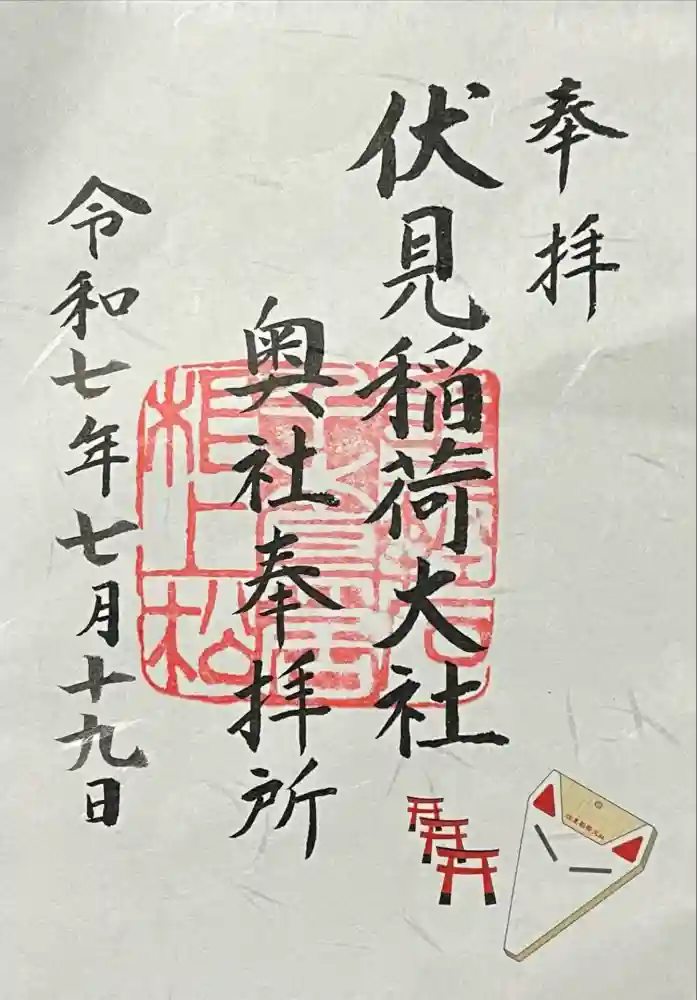 奉拝
伏見稲荷大社
奥社奉拝所
令和七年七月十九日
伏見稲荷大社